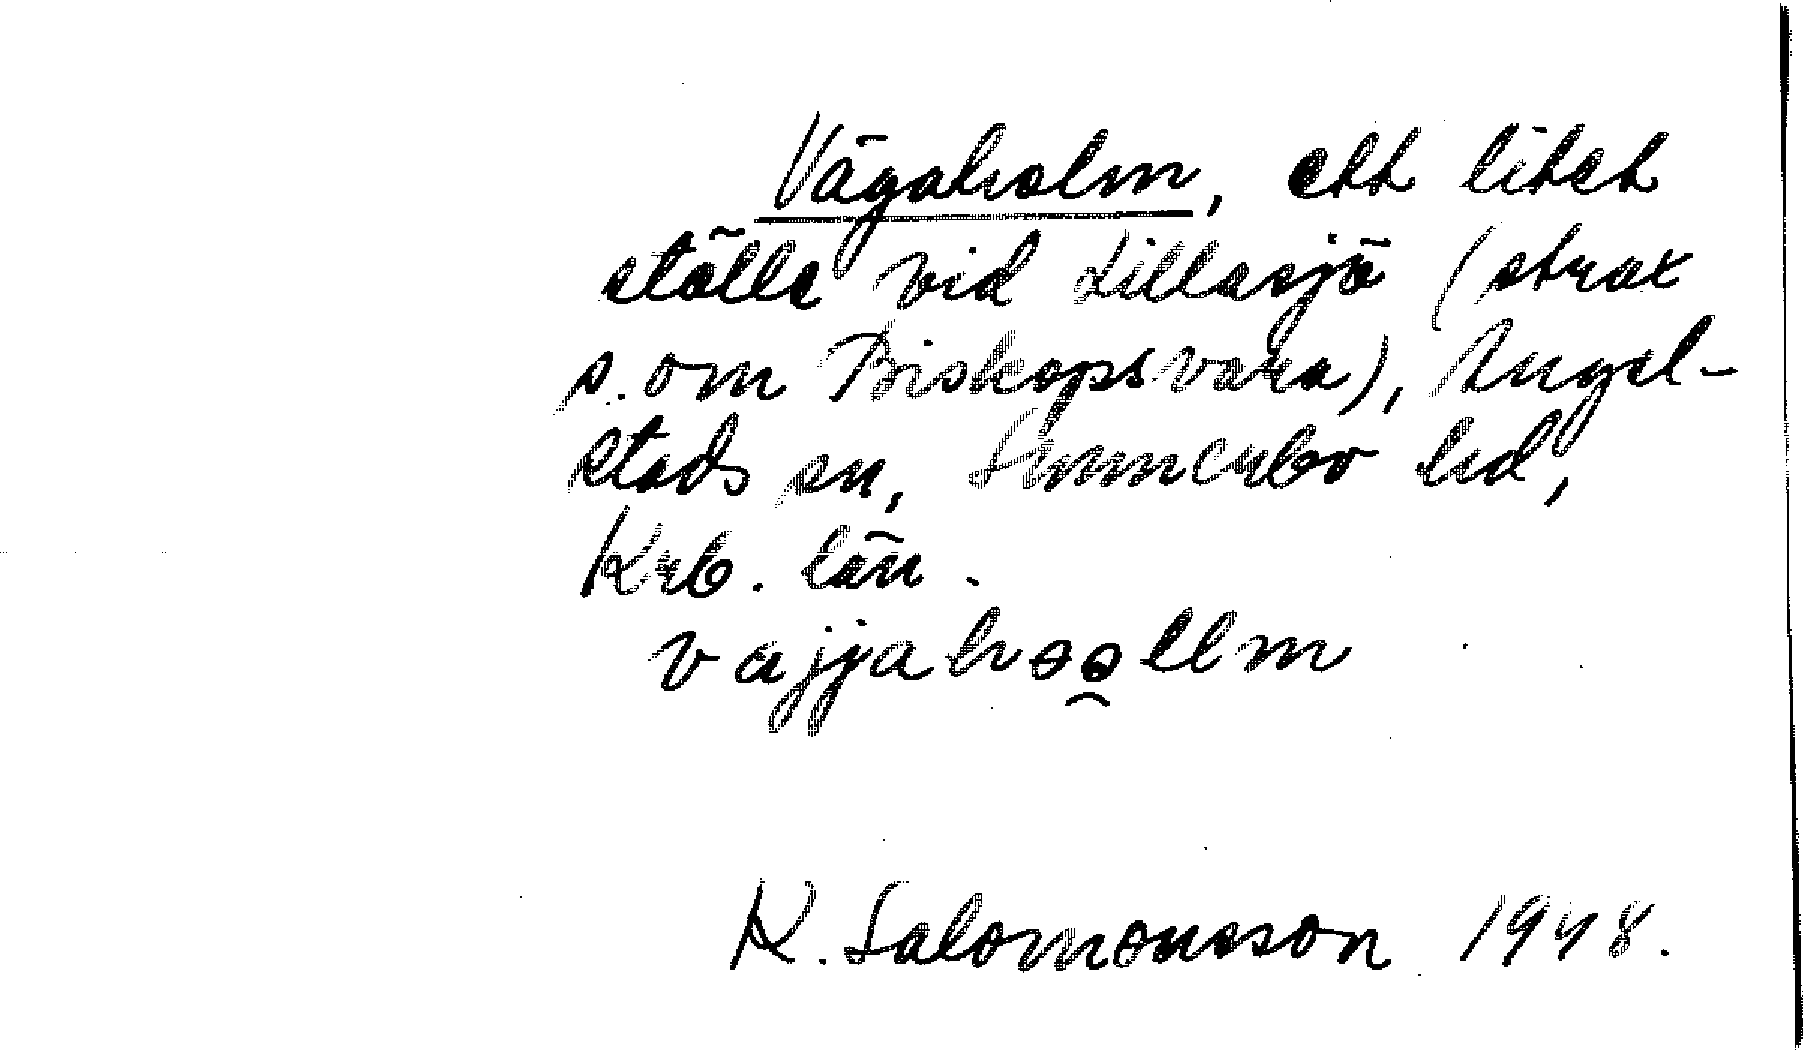 Vägaholm, ett litet
ställe vid Lillasjö (strax
s. om Biskopsvara), Angel-
stads sn, Sunnerbo hd,
Krb. län.
vajjahoollm
K. Salomonsson 1948.